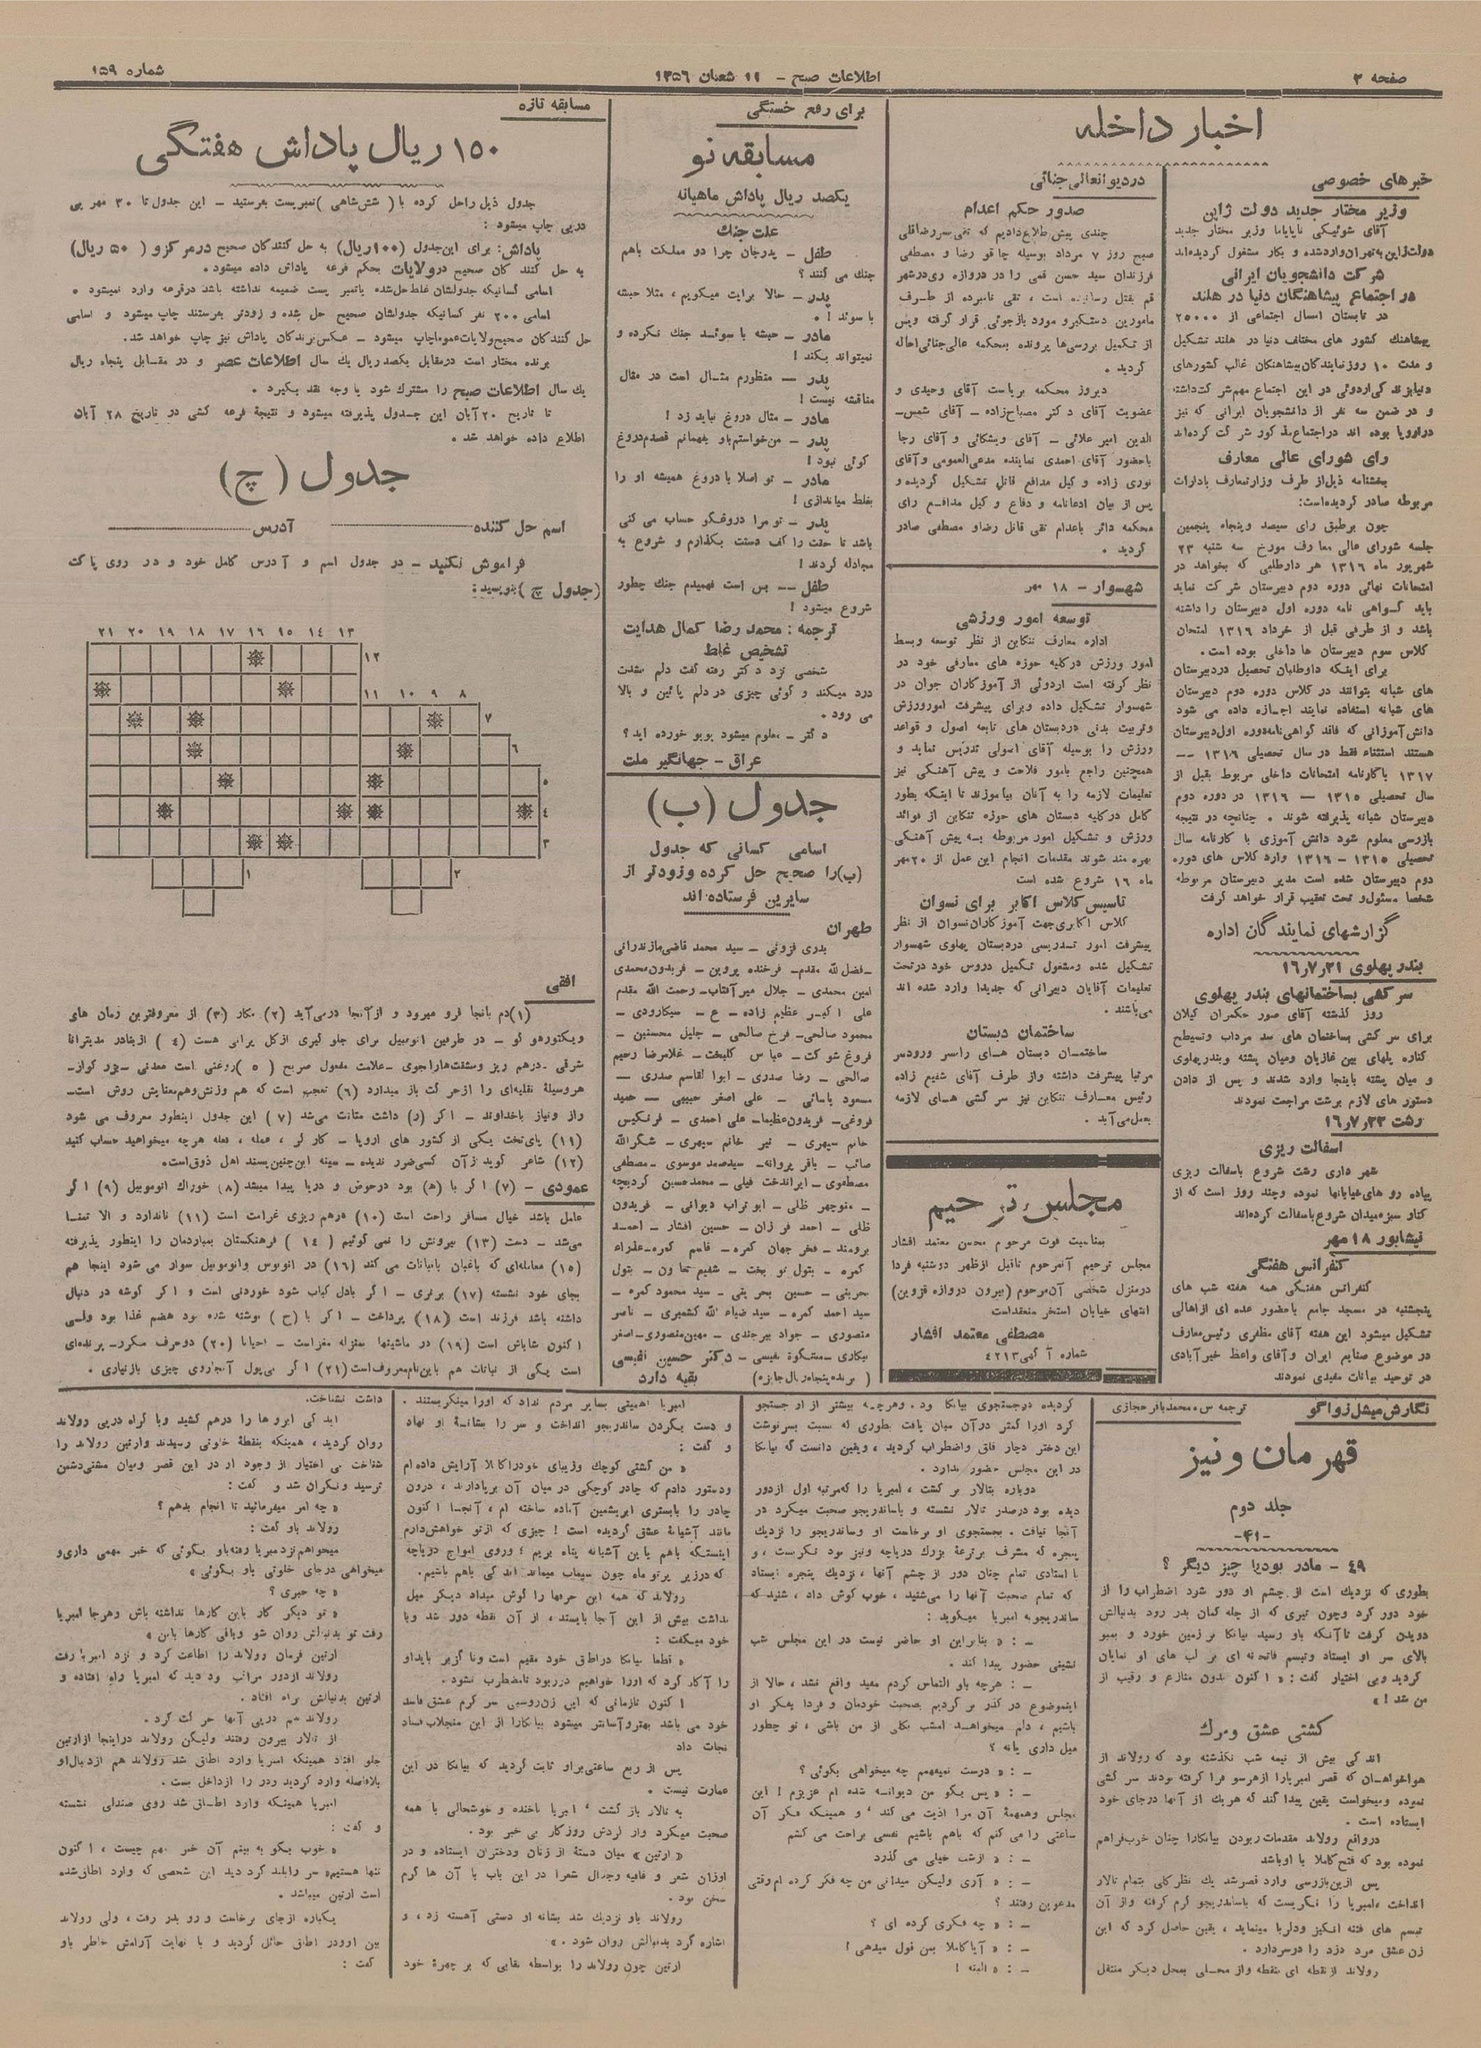 صفحه ۲
اطلاعات صبح – ۱۱ شعبان ۱۳۵۶
شماره ۱۵۹
اخبار داخله
خبرهای خصوصی
وزیر مختار جدید دولت ژاپن
آقای شوئیکی ناپایاما وزیر مختار جدید
دولت ژاپن به تهران وارد شده و بکار مشغول گردیده‌اند
شرکت دانشجویان ایرانی
در اجتماع پیشاهنگان دنیا در هلند
در تابستان امسال اجتماعی از ۲۵۰۰۰
پیشاهنگ کشور های مختلف دنیا در هلند تشکیل
و مدت ۱۰ روز نمایندگان پیشاهنگان غالب کشورهای
دنیا بزندگی اردوئی در این اجتماع مهم شرکت داشته
و در ضمن سه نفر از دانشجویان ایرانی که نیز
در اروپا بوده اند در اجتماع مذکور شرکت کرده‌اند
رای شورای عالی معارف
بخشنامه ذیل از طرف وزارت معارف بادارات
مربوطه صادر گردیده است:
چون برطبق رای سیصد و پنجاه پنجمین
جلسه شورای عالی معارف مورخ سه شنبه ۲۳
شهریور ماه ۱۳۱۶ هر داوطلبی که بخواهد در
امتحانات نهائی دوره دوم دبیرستان شرکت نماید
باید گواهی نامه دوره اول دبیرستان را داشته
باشد و از طرفی قبل از خرداد ۱۳۱۶ امتحان
کلاس سوم دبیرستان ها داخلی بوده است.
برای اینکه داوطلبان تحصیل در دبیرستان
های شبانه بتوانند در کلاس دوره دوم دبیرستان
های شبانه استفاده نمایند اجازه داده می شود
دانش‌آموزانی که فاقد گواهی‌نامه دوره اول دبیرستان
هستند استثناء فقط در سال تحصیلی ۱۳۱۶ —
۱۳۱۷ با کارنامه امتحانات داخلی مربوط بقبل از
سال تحصیلی ۱۳۱۵ — ۱۳۱۶ در دوره دوم
دبیرستان شبانه پذیرفته شوند . چنانچه در نتیجه
بازرسی معلوم شود دانش آموزی با کارنامه سال
تحصیلی ۱۳۱۵ – ۱۳۱۶ وارد کلاس های دوره
دوم دبیرستان شده است مدیر دبیرستان مربوطه
شخصا مسئول و تحت تعقیب قرار خواهد گرفت
گزارشهای نمایندگان اداره
بندر پهلوی ۱۶٫۷٫۲۱
سرکشی بساختمانهای بندر پهلوی
روز گذشته آقای صور حکمران گیلان
برای سرکشی بساختمان های سد مرداب و تسطیح
کناره پلهای بین غازیان و میان پشته و بندر پهلوی
و میان پشته باینجا وارد شدند و پس از دادن
دستور های لازم برشت مراجعت نمودند
رشت ۱۶٫۷٫۲۳
اسفالت ریزی
شهر داری رشت شروع باسفالت ریزی
پیاده رو های خیابانها نموده و چند روز است که از
کنار سبزه میدان شروع باسفالت کرده‌اند
نیشابور ۱۸ مهر
کنفرانس هفتگی
کنفرانس هفتگی همه هفته شب های
پنجشنبه در مسجد جامع با حضور عده ای از اهالی
تشکیل میشود این هفته آقای مظفری رئیس معارف
در موضوع صنایع ایران و آقای واعظ خیر آبادی
در توحید بیانات مفیدی نمودند
در دیوانعالی جنائی
صدور حکم اعدام
چندی پیش اطلاع دادیم که تقی سر رضاقلی
صبح روز ۷ مرداد بوسیله چاقو رضا و مصطفی
فرزندان سید حسن قمی را در دروازه ری در شهر
قم بقتل رسانیده است ، تقی نامبرده از طرف
مامورین دستگیر و مورد بازجوئی قرار گرفته و پس
از تکمیل بررسی‌ها پرونده بمحکمه عالی جنائی احاله
گردید .
دیروز محکمه بریاست آقای وحیدی و
عضویت آقای دکتر مصباح‌زاده – آقای شمس–
الدین امیر علائی – آقای ویشکائی و آقای رجا
با حضور آقای احمدی نماینده مدعی‌العمومی و آقای
نوری زاده وکیل مدافع قاتل تشکیل گردیده و
پس از بیان ادعانامه و دفاع وکیل مدافع رای
محکمه دائر باعدام تقی قاتل رضا و مصطفی صادر
گردید .
شهسوار – ۱۸ مهر
توسعه امور ورزشی
اداره معارف تنکابن از نظر توسعه و بسط
امور ورزش در کلیه حوزه های معارفی خود در
نظر گرفته است اردوئی از آموزگاران جوان در
شهسوار تشکیل داده و برای پیشرفت امور ورزش
و تربیت بدنی در دبستان های تابعه اصول و قواعد
ورزش را بوسیله آقای اصولی تدریس نماید و
همچنین راجع بامور فلاحت و پیش آهنگی نیز
تعلیمات لازمه را به آنان بیاموزند تا اینکه بطور
کامل در کلیه دبستان های حوزه تنکابن از فوائد
ورزش و تشکیل امور مربوطه به پیش آهنگی
بهره مند شوند مقدمات انجام این عمل از ۲۰ مهر
ماه ۱۶ شروع شده است
تاسیس کلاس اکابر برای نسوان
کلاس اکابری جهت آموزگاران نسوان از نظر
پیشرفت امور تدریسی در دبستان پهلوی شهسوار
تشکیل شده و مشغول تکمیل دروس خود در تحت
تعلیمات آقایان دبیرانی که جدیدا وارد شده اند
می‌باشند .
ساختمان دبستان
ساختمان دبستان های رامسر و رودسر
مرتبا پیشرفت داشته و از طرف آقای شفیع زاده
رئیس معارف تنکابن نیز سرکشی های لازمه
بعمل می‌آید .
مجلس ترحیم
بمناسبت فوت مرحوم محسن معتمد افشار
مجلس ترحیم آنمرحوم تا قبل از ظهر دوشنبه فردا
در منزل شخصی آن مرحوم (بیرون دروازه قزوین)
انتهای خیابان استخر منعقد است
مصطفی معتمد افشار
شماره آگهی ۴۲۱۳
برای رفع خستگی
مسابقه نو
یکصد ریال پاداش ماهیانه
علت جنگ
طفل – پدرجان چرا دو مملکت باهم
جنگ می کنند ؟
پدر – حالا برایت میگویم ، مثلا حبشه
با سوئد ! .
مادر – حبشه با سوئد جنگ نکرده و
نمیتواند بکند !
پدر — منظورم مثال است در مثال
مناقشه نیست !
مادر – مثال دروغ نباید زد !
پدر – من خواستم باو بفهمانم قصدم دروغ
گوئی نبود !
مادر – تو اصلا با دروغ همیشه او را
بغلط میاندازی !
پدر – تو مرا دروغگو حساب می کنی
باشد تا حقت را کف دستت بگذارم و شروع به
مجادله کردند !
طفل – بس است فهمیدم جنگ چطور
شروع میشود !
ترجمه : محمد رضا کمال هدایت
تشخیص غلط
شخصی نزد دکتر رفته گفت دلم بشدت
درد میکند و گوئی چیزی در دلم پائین و بالا
می رود .
دکتر – معلوم میشود یویو خورده اید ؟
عراق – جهانگیر ملت
جدول (ب)
اسامی کسانی که جدول
(ب) را صحیح حل کرده و زودتر از
سایرین فرستاده اند
طهران
بدری قزوئی – سید محمد قاضی مازندرانی
–فضل الله مقدم– فرخنده پروین – فریدون محمدی
امین محمدی – جلال میر آفتاب– رحمت الله مقدم
علی اکبر عظیم زاده – ع – سیگارودی –
محمود صالحی– فرخ صالحی – جلیل محسنین –
فروغ شوکت – عباس گلبخت – غلامرضا رحیم
صالحی – رضا صدری – ابوالقاسم صدری –
مسعود یاسائی – علی اصغر حبیبی – حمید
فروغی– فریدون عظیما– علی احمدی – فرنگیس
خانم سپهری – نیر خانم سپهری – شکرالله
صائب – باقر پروانه– سید صمد موسوی – مصطفی
مصطفوی – ایراندخت فیلی – محمد حسین کردبچه
– منوچهر ظلی – ابوتراب دیوانی – فریدون
ظلی – احمد فرزان – حسین افشار – احمد
برومند – فخر جهان کمره– قاسم کمره–عذراء
کمره – بتول نو بخت – شفیع تعاون – بتول
بحرینی – حسین بحرینی – سید محمود کمره –
سید احمد کمره – سید ضیاء الله کشمیری – ناصر
منصوری – جواد بیرجندی – مهین منصوری–اصغر
– دکتر حسین نفیسی
(برنده پنجاه ریال جایزه) بقیه دارد
مسابقه تازه
۱۵۰ ریال پاداش هفتگی
جدول ذیل را حل کرده با (شش شاهی) تمبر پست بفرستید – این جدول تا ۳۰ مهر پی
در پی چاپ میشود :
پاداش: برای این جدول (۱۰۰ ریال) به حل کنندگان صحیح در مرکز و (۵۰ ریال)
به حل کنندگان صحیح در ولایات بحکم قرعه پاداش داده میشود .
اسامی کسانیکه جدولشان غلط حل شده یا تمبر پست ضمیمه نداشته باشد در قرعه وارد نمیشود .
اسامی ۲۰۰ نفر کسانیکه جدولشان صحیح حل شده و زودتر بفرستند چاپ میشود و اسامی
حل کنندگان صحیح ولایات عموما چاپ میشود – عکس برندگان پاداش نیز چاپ خواهد شد .
برنده مختار است در مقابل یکصد ریال یك سال اطلاعات عصر و در مقابل پنجاه ریال
یك سال اطلاعات صبح را مشترك شود یا وجه نقد بگیرد .
تا تاریخ ۲۰ آبان این جدول پذیرفته میشود و نتیجۀ قرعه کشی در تاریخ ۲۸ آبان
اطلاع داده خواهد شد .
جدول (چ)
اسم حل کننده
آدرس
فراموش نکنید – در جدول اسم و آدرس کامل خود و در روی پاکت
(جدول چ) بنویسید:
۱۳ ۱۴ ۱۵ ۱۶ ۱۷ ۱۸ ۱۹ ۲۰ ۲۱
۱۲
۸ ۹ ۱۰ ۱۱
۷
۶
۵
۴
۳
۲ ۱
افقی
(۱) دم بانجا فرو میرود و از آنجا در می‌آید (۲) مکار (۳) از معروفترین رمان های
ویکتور هوگو – در طرفین اتومبیل برای جلوگیری از گل پرانی هست (۴) از بنادر مدیترانۀ
شرقی – درهم ریز و سقف ها را بجوی – علامت مفعول صریح (۵) روغنی است معدنی –بزرگوار–
هر وسیلۀ نقلیه‌ای را از حرکت باز میدارد (۶) تعجب است که هم وزنش و هم معنایش روش است–
راز و نیاز با خداوند – اگر (ر) داشت متانت می‌شد (۷) این جدول اینطور معروف می شود
(۱۱) پای‌تخت یکی از کشور های اروپا – کارگر ، عمله ، فعله هرچه میخواهید حساب کنید
(۱۲) شاعر گوید ز آن کسی ضرر ندیده – سینه این چنین پسند اهل ذوق است.
عمودی – (۷) اگر با (ه) بود در حوض و دریا پیدا میشد (۸) خوراك اتومبیل (۹) اگر
عامل باشد خیال مسافر راحت است (۱۰) درهم ریزی غرامت است (۱۱) تا ندارد و الا تمنا
می‌شد – دست (۱۳) بیرونش را نمی گوئیم (۱۴) فرهنگستان بمباردمان را اینطور پذیرفته
(۱۵) معامله‌ای که باغبان با نباتات می کند (۱۶) در اتوبوس و اتومبیل سوار می شود اینجا هم
بجای خود نشسته (۱۷) برتری – اگر بادل کباب شود خوردنی است و اگر گوشه در دنبال
داشته باشد فرزند است (۱۸) پرداخت – اگر با (ح) نوشته شده بود هضم غذا بود ولی
اکنون شاباش است (۱۹) در ماشینها بمنزله مغز است – احیانا (۲۰) دو حرف مکرر– پرنده‌ای
است یکی از نباتات هم باین نام معروف است (۲۱) اگر بی‌پول چیزی بازنیاری .
نگارش میشل زواگو
ترجمه س . محمد باقر حجازی
قهرمان ونیز
جلد دوم
–۴۱–
۴۹ – مادر بود یا چیز دیگر ؟
بطوری که نزدیك است از چشم او دور شود اضطراب را از
خود دور کرد و چون تیری که از چله کمان بدر رود بدنبالش
دویدن گرفت تا آنکه باو رسید بیانکا بر زمین خورد و بمبو
بالای سر او ایستاد و تبسم فاتحانه ای بر لب های او نمایان
گردید و بی اختیار گفت : « اکنون بدون منازع و رقیب از
من شد ! »
کشتی عشق و مرگ
اندکی بیش از نیمه شب نگذشته بود که رولاند از
هواخواهان که قصر امپریا را از هر سو فرا گرفته بودند سرکشی
نموده و میخواست یقین پیدا کند که هر یك از آنها در جای خود
ایستاده است .
در واقع رولاند مقدمات ربودن بیانکا را چنان خوب فراهم
نموده بود که فتح کاملا با او باشد
پس از این بازرسی وارد قصر شد یك نظر کلی بتمام تالار
انداخت ، امپریا را نگریست که با ساندریجو گرم گرفته و از آن
تبسم های فتنه انگیز و دلربا مینماید ، یقین حاصل کرد که این
زن عشق مرد دزد را در سر دارد .
رولاند از نقطه ای بنقطه و از محلی بمحل دیگر منتقل
گردیده در جستجوی بیانکا بود . و هرچه بیشتر از او جستجو
کرد او را کمتر در آن میان یافت بطوری که نسبت بسرنوشت
این دختر دچار قلق و اضطراب گردید ، و یقین دانست که بیانکا
در این مجلس حضور ندارد .
دوباره بتالار برگشت ، امپریا را که مرتبه اول از دور
دیده بود در صدر تالار نشسته و با ساندریجو صحبت میکرد در
آنجا نیافت . بجستجوی او برخاست و ساندریجو را نزدیك
پنجره که مشرف بر ترعۀ بزرك دریاچه ونیز بود نگریست ، و
با استادی تمام چنان دور از چشم آنها ، نزدیك پنجره ایستاد
که تمام صحبت آنها را می‌شنید ، خوب گوش داد ، شنید که
ساندریجو به امپریا میگوید :
– : « بنابراین او حاضر نیست در این مجلس شب
نشینی حضور پیدا کند .
– : هرچه باو التماس کردم مفید واقع نشد ، حالا از
اینموضوع در گذر برگردیم بصحبت خودمان و فردا بفکر او
باشیم ، دلم میخواهد امشب بکلی از من باشی ، تو چطور
میل داری یا نه ؟
– : « درست نمیفهمم چه میخواهی بگوئی ؟
– : « پس بگو من دیوانه شده ام عزیزم ! این
مجلس و همهمۀ آن مرا اذیت می کند ، و همینکه فکر آن
ساعتی را می کنم که باهم باشیم نفسی براحت می کشم
– : « از شب خیلی می گذرد
– : « آری ولیکن میدانی من چه فکر کرده ام وقتی
مدعوین رفتند ؟
– : « چه فکری کرده ای ؟
– : « آیا کاملا بمن قول میدهی !
– : « البته !
امپریا اهمیتی بسایر مردم نداد که او را مینگریستند .
و دست بگردن ساندریجو انداخت و سر را بشانۀ او نهاد
و گفت :
« من کشتی کوچك و زیبای خود را کاملا آرایش داده ام
و دستور دادم که چادر کوچکی در میان آن بر پا دارند ، درون
چادر را با بستری ابریشمین آماده ساخته ام ، آنجا اکنون
مانند آشیانۀ عشق گردیده است ! چیزی که از تو خواهش دارم
اینستکه باهم باین آشیانه پناه بریم ؛ و روی امواج دریاچه
که در زیر پرتو ماه چون سیماب میماند اندکی باهم باشیم.
رولاند که همه این حرفها را گوش میداد دیگر میل
نداشت بیش از این آنجا بایستد ، از آن نقطه دور شد و با
خود میگفت :
« قطعا بیانکا در اطاق خود مقیم است و ناگزیر باید او
را آگاه کرد که او را خواهیم در ربود تا مضطرب نشود .
اکنون تا زمانی که این زن روسپی سرگرم عشق فاسد
خود می باشد بهتر و آسانتر میشود بیانکا را از این منجلاب فساد
نجات داد
پس از ربع ساعتی بر او ثابت گردید که بیانکا در این
عمارت نیست .
به تالار بازگشت ، امپریا با خنده و خوشحالی با همه
صحبت میکرد و از گردش روزگار بی خبر بود .
« ارتین » میان دستۀ از زنان و دختران ایستاده و در
اوزان شعر و قافیه و جدال شعرا در این باب با آن ها گرم
سخن بود .
رولاند باو نزدیك شد بشانه او دستی آهسته زد ، و
اشاره کرد بدنبالش روان شود . »
ارتین چون رولاند را بواسطه نقابی که بر چهرۀ خود
داشت نشناخت.
اندکی ابرو ها را درهم کشید و با کراه در پی رولاند
روان گردید ، همینکه بنقطۀ خلوتی رسیدند و ارتین رولاند را
شناخت بی اختیار از وجود او در این قصر و میان دشمن
ترسید و نگران شد و گفت :
« چه امر میفرمائید تا انجام بدهم ؟
رولاند باو گفت :
میخواهم نزد امپریا رفته باو بگوئی که خبر مهمی داری و
میخواهی در جای خلوتی باو بگوئی »
« چه خبری ؟
« تو دیگر کار باین کارها نداشته باش و هرجا امپریا
رفت تو بدنبالش روان شو و باقی کارها با من »
ارتین فرمان رولاند را اطاعت کرد و نزد امپریا رفت
رولاند از دور مراقب بود دید که امپریا راه افتاده و
ارتین بدنبالش براه افتاد .
رولاند هم در پی آنها حرکت کرد .
از تالار بیرون رفتند ولیکن رولاند در اینجا از ارتین
جلو افتاد همینکه امپریا وارد اطاق شد رولاند هم از دنبال او
بلافاصله وارد گردید و در را از داخل بست .
امپریا همینکه وارد اطاق شد روی صندلی نشسته
و گفت :
« خوب بگو به بینم آن خبر مهم چیست ، اکنون
تنها هستیم» سر را بلند کرد دید این شخصی که وارد اطاق شده
است ارتین میباشد .
یکباره از جای برخاست و رو بدر رفت ، ولی رولاند
بین او و در اطاق حائل گردید و با نهایت آرامش خاطر باو
گفت :